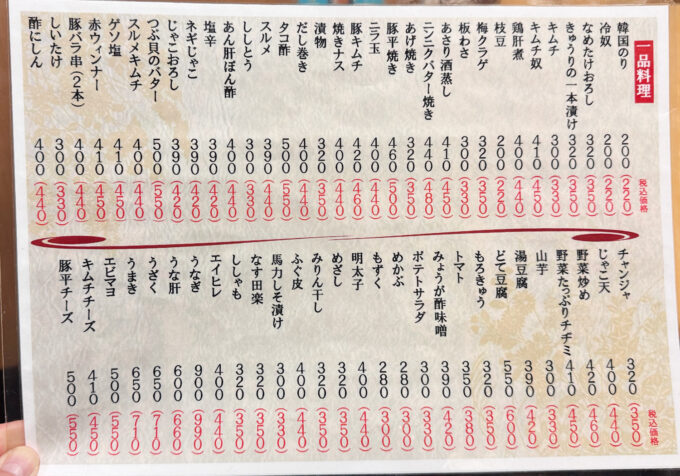 一品料理
税込価格
韓国のり 200(220)
冷奴 200(220)
なめたけおろし 320(350)
きゅうりの一本漬け 320(350)
キムチ 300(330)
キムチ奴 410(450)
鶏肝煮 400(440)
枝豆 200(220)
梅クラゲ 320(350)
板わさ 300(330)
あさり酒蒸し 410(450)
ニンニクバター焼き 440(480)
あげ焼き 320(350)
豚平焼き 460(500)
ニラ玉 400(440)
豚キムチ 420(460)
焼きナス 400(440)
漬物 320(350)
だし巻き 400(440)
タコ酢 500(550)
スルメ 390(440)
ししとう 300(330)
あん肝ぽん酢 400(440)
塩辛 390(420)
ネギじゃこ 390(420)
じゃこおろし 390(420)
つぶ貝のバター 500(550)
スルメキムチ 400(450)
ゲソ塩 410(450)
赤ウィンナー 410(450)
豚バラ串(2本) 400(440)
しいたけ 300(330)
酢にしん 400(440)
税込価格
チャンジャ 320(350)
じゃこ天 400(440)
野菜炒め 420(460)
野菜たっぷりチヂミ 410(450)
山芋 300(330)
湯豆腐 390(420)
どて豆腐 550(600)
もろきゅう 320(350)
トマト 350(380)
みょうが酢味噌 390(420)
ポテトサラダ 300(330)
めかぶ 280(300)
もずく 280(300)
明太子 400(440)
めざし 320(350)
みりん干し 320(350)
ふぐ皮 400(440)
馬力しそ漬け 300(330)
なす田楽 320(350)
ししゃも 320(350)
エイヒレ 400(440)
うなぎ 900(990)
うな肝 600(660)
うざく 650(710)
うまき 650(710)
エビマヨ 500(550)
キムチチーズ 410(450)
豚平チーズ 500(550)